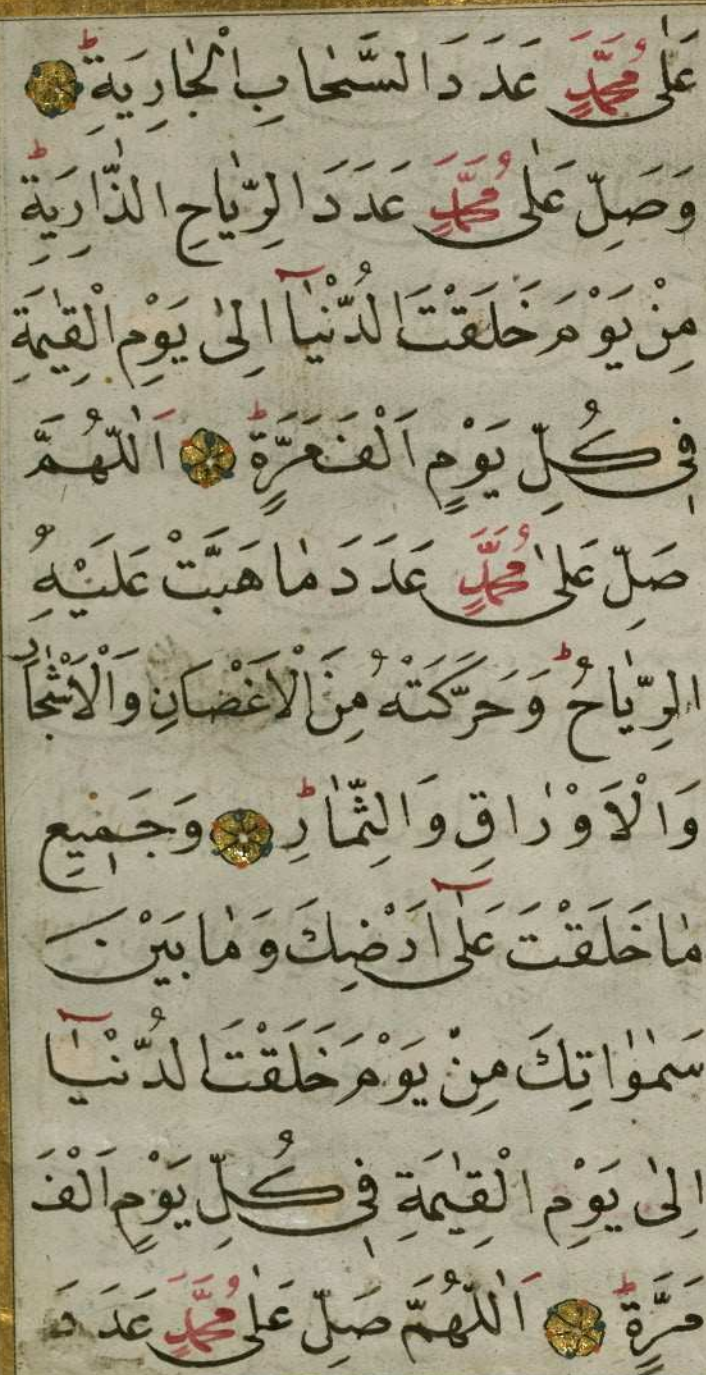 عَلٰى مُحَمَّدٍ عَدَدَ السَّحَابِ الْجَارِيَةِ ط
وَصَلِّ عَلٰى مُحَمَّدٍ عَدَدَ الرِّيَاحِ الذَّارِيَةِ ط
مِنْ يَوْمَ خَلَقْتَ الدُّنْيَآ اِلٰى يَوْمِ الْقِيٰمَةِ
فِى كُلِّ يَوْمٍ اَلْفَ مَرَّةٍ ط اَللّٰهُمَّ
صَلِّ عَلٰى مُحَمَّدٍ عَدَدَ مَا هَبَّتْ عَلَيْهِ
الرِّيَاحُ ط وَحَرَّكَتْهُ مِنَ الْاَغْصَانِ وَالْاَشْجَارِ
وَالْاَوْرَاقِ وَالثِّمَارِ ط وَجَمِيعِ
مَا خَلَقْتَ عَلٰٓى اَرْضِكَ وَمَا بَيْنَ
سَمٰوَاتِكَ مِنْ يَوْمَ خَلَقْتَ الدُّنْيَآ
اِلٰى يَوْمِ الْقِيٰمَةِ فِى كُلِّ يَوْمٍ اَلْفَ
مَرَّةٍ ط اَللّٰهُمَّ صَلِّ عَلٰى مُحَمَّدٍ عَدَدَ